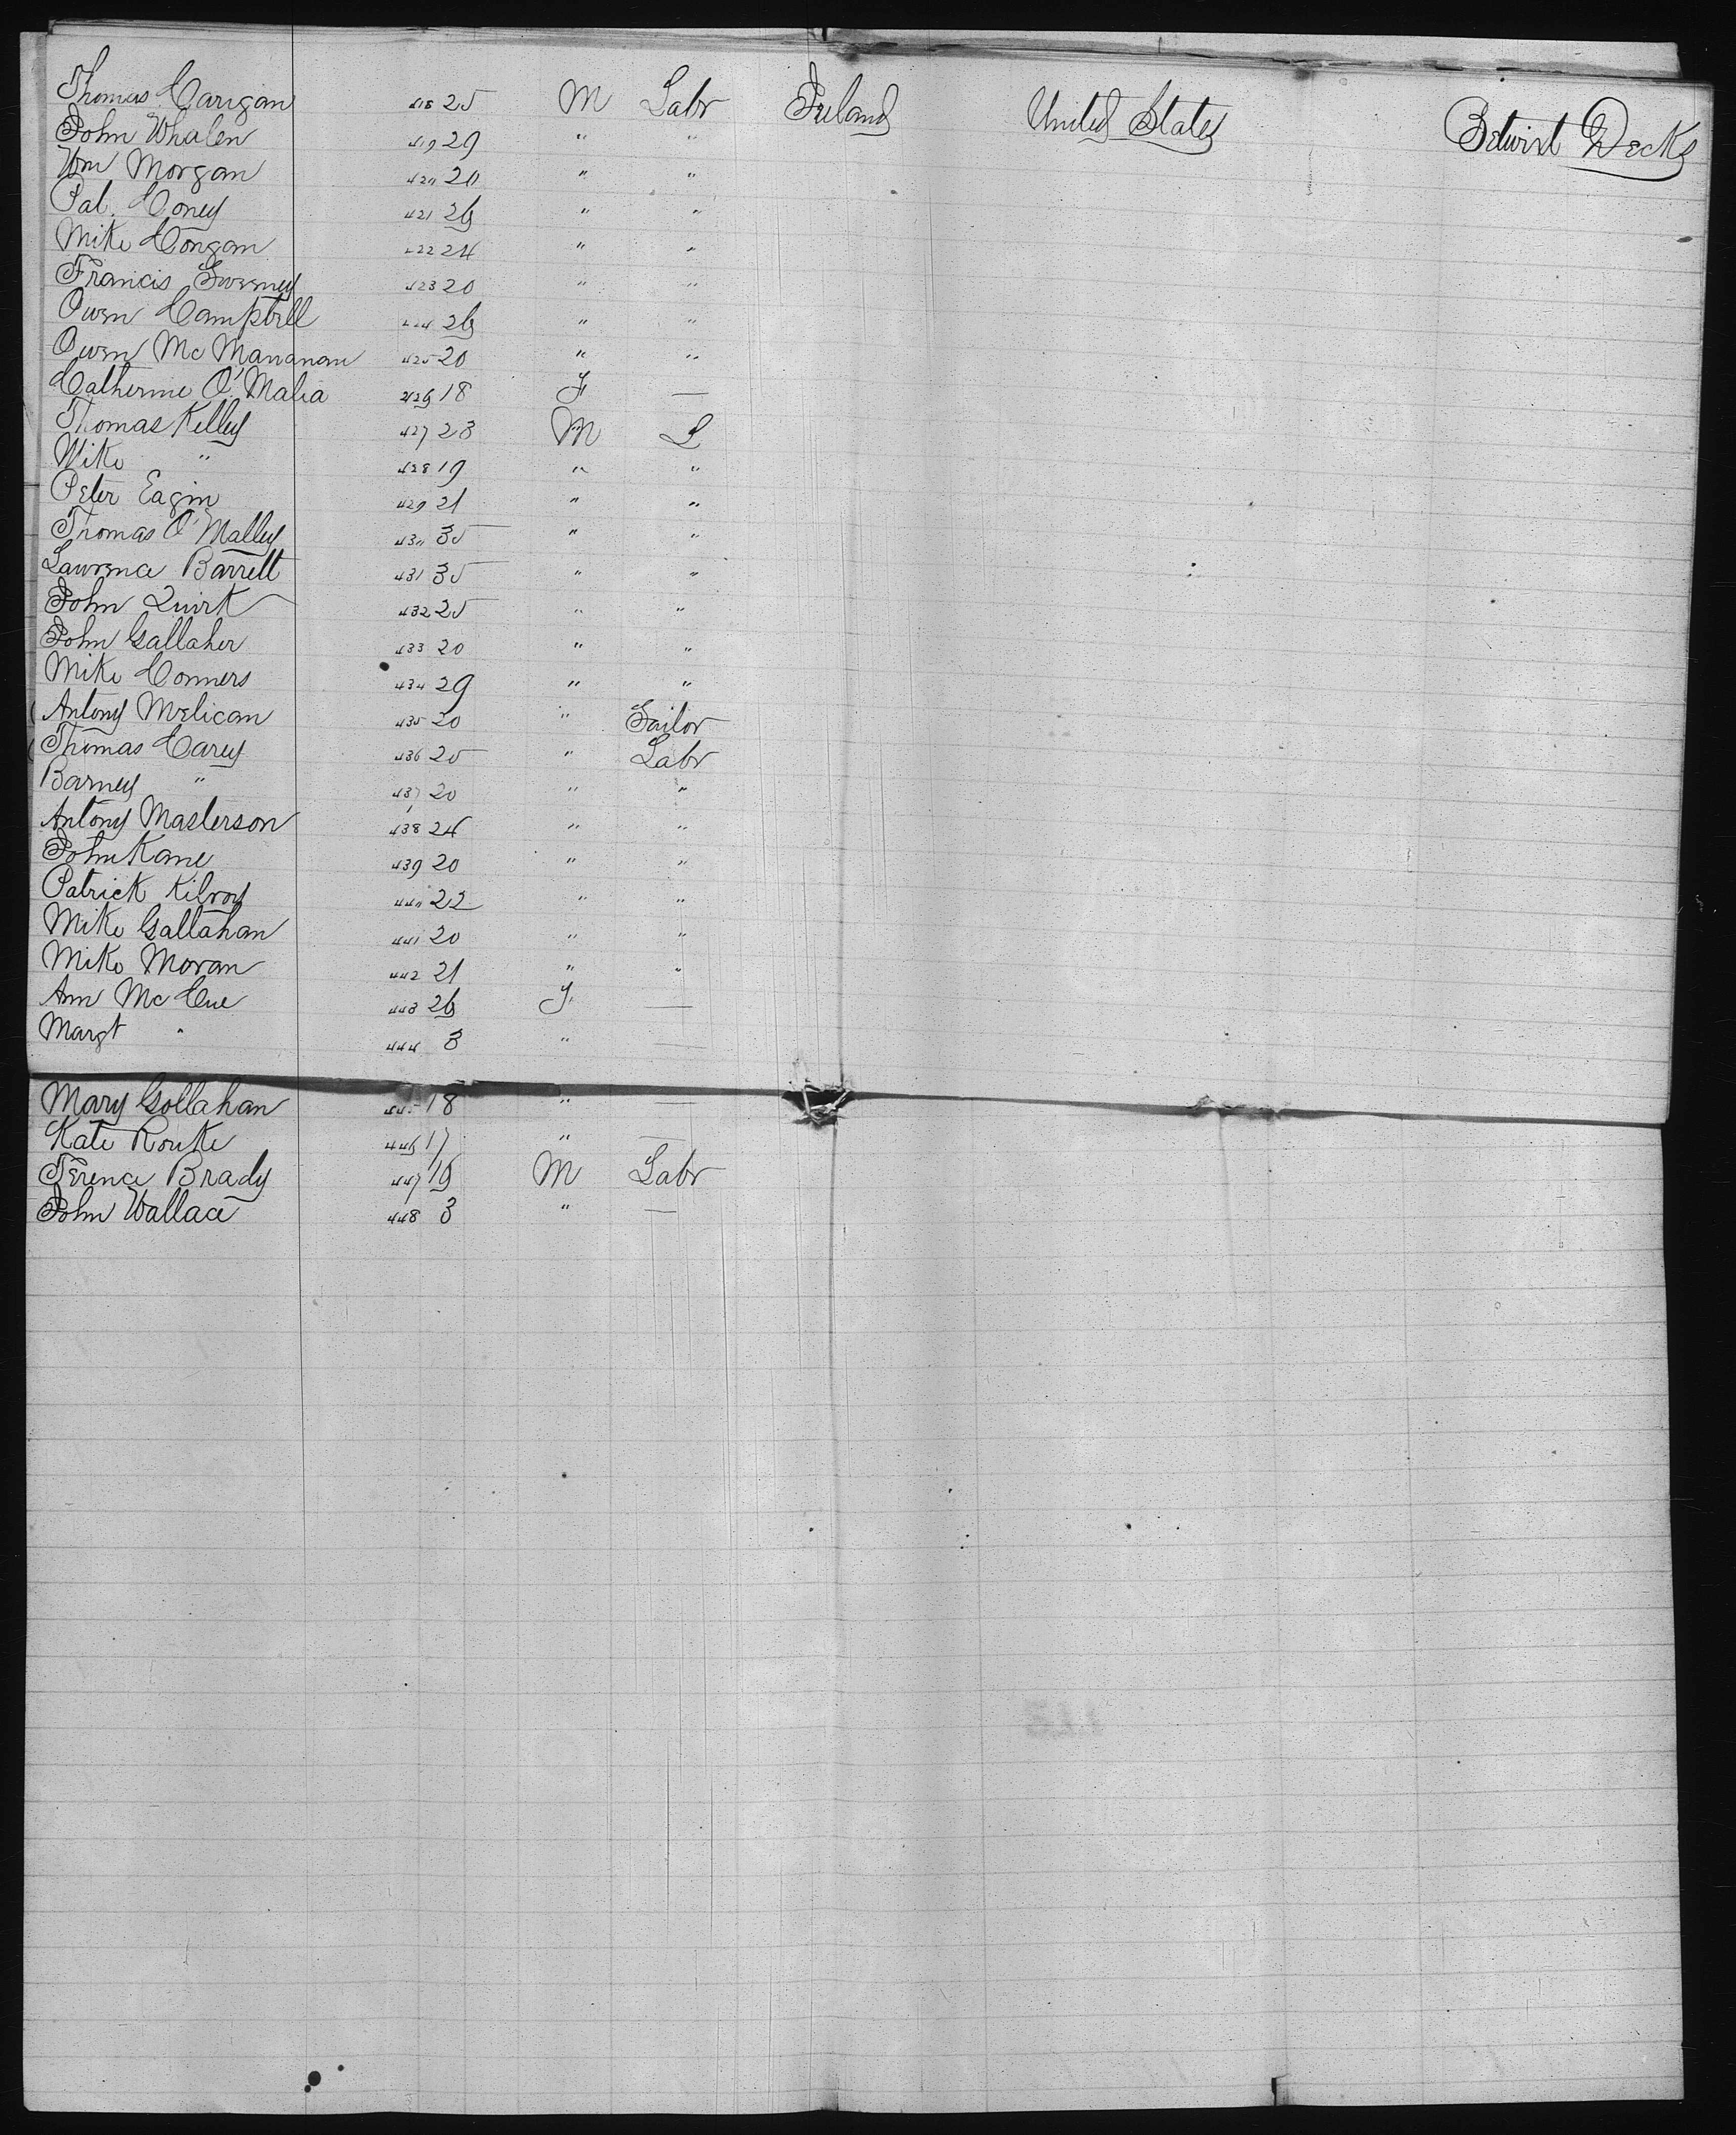 Thomas Carigan 418 25 M Labr Ireland United States Betwixt Decks
John Whalen 419 29 " "
Wm Morgan 420 20 " "
Pat. Coney 421 26 " "
Mike Congan 422 24 " "
Francis Sweeney 423 20 " "
Owen Campbell 424 26 " "
Owen Mc Manaman 425 20 " "
Catherine O'Malia 426 18 F —
Thomas Kelley 427 23 M L
Mike " 428 19 " "
Peter Eagin 429 21 " "
Thomas O'Malley 430 35 " "
Lawrence Barrett 431 35 " "
John Quirk 432 25 " "
John Gallaher 433 20 " "
Mike Conners 434 29 " "
Antony Melican 435 20 " Sailor
Thomas Carey 436 25 " Labr
Barney " 437 20 " "
Antony Masterson 438 24 " "
John Kane 439 20 " "
Patrick Kilroy 440 22 " "
Mike Gallahan 441 20 " "
Mike Moran 442 21 " "
Ann Mc Cue 443 26 F. —
Margt " 444 3 " —
Mary Gollahan 445 18 " —
Kate Rourke 446 17 " —
Terence Brady 447 19 M Labr
John Wallace 448 3 " —